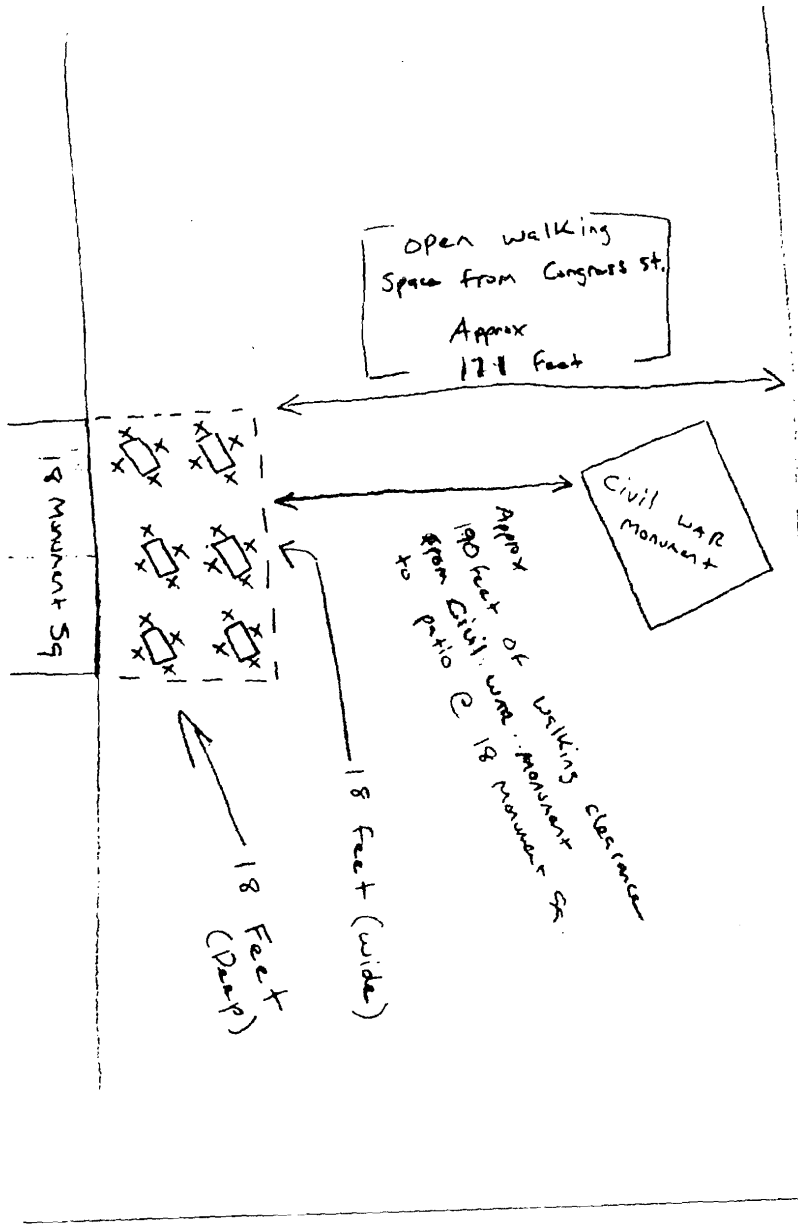 Open walking
Space from Congress St.
Approx
171 Feet
Civil WAR
Monument
18 Monument Sq
Approx
190 feet of walking clearance
from Civil WAR Monument
to patio @ 18 Monument Sq.
18 feet (wide)
18 Feet
(Deep)